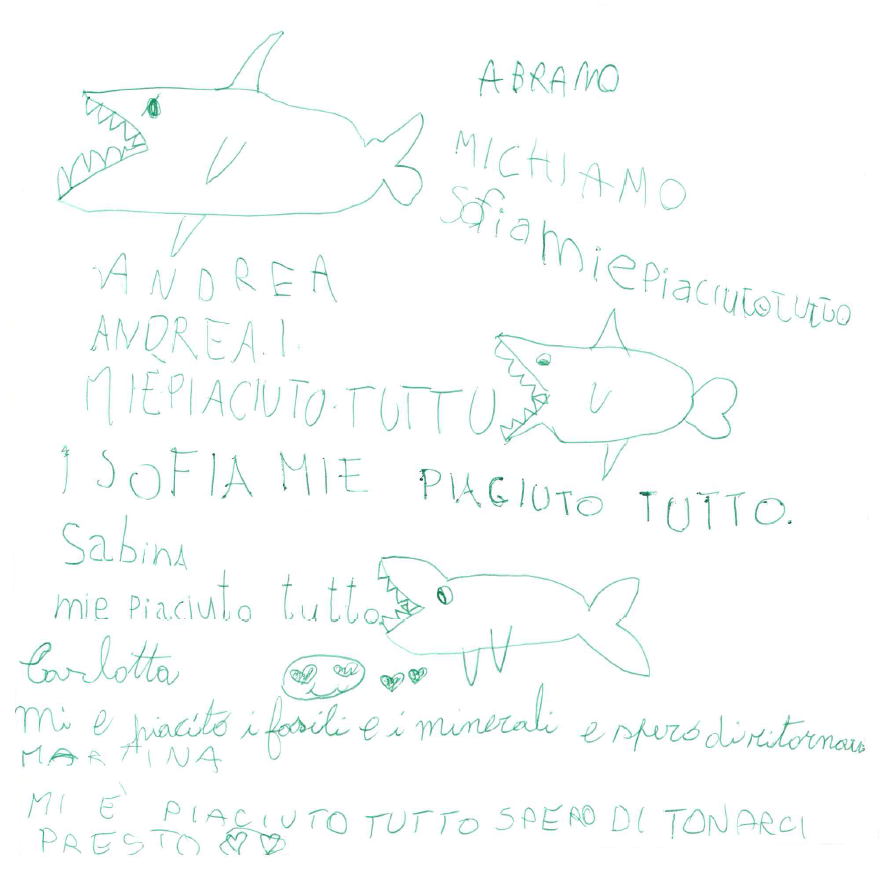 ABRAMO
MI CHIAMO
Sofia mi e piaciuto tutto
ANDREA
ANDREA.I.
MI È PIACIUTO.TUTTO
I SOFIA MIE PIACIUTO TUTTO.
SabiNA
mie piaciuto tutto
Carlotta
Mi e piacito i fossili e i minerali e spero di ritornare
MARTINA
MI È PIACIUTO TUTTO SPERO DI TONARCI
PRESTO